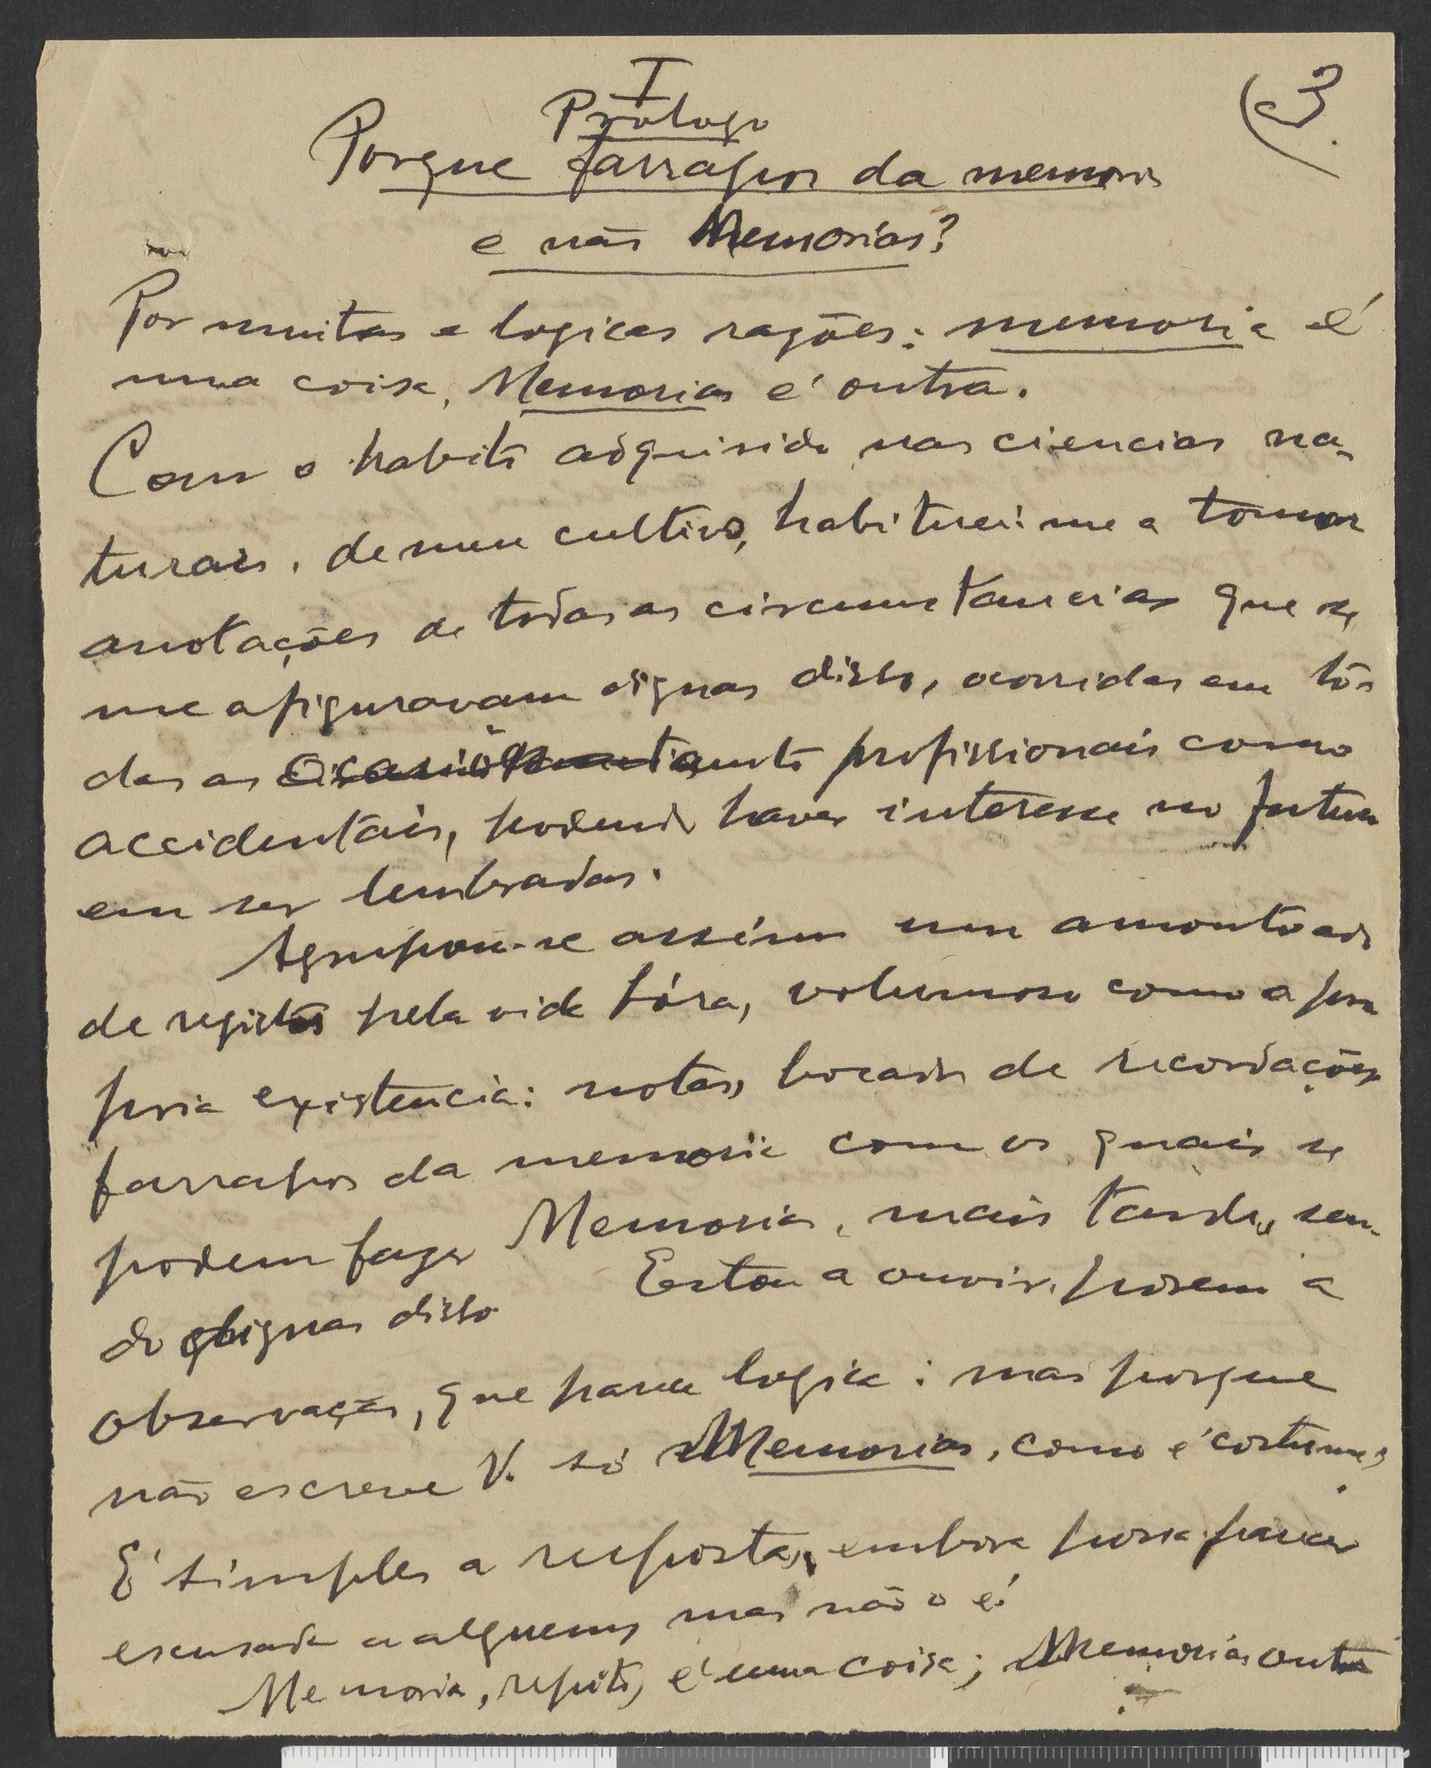 I
3
Prologo
Porque farrapos da memoria
e não Memorias?
Por muitas e logicas razões: memoria é
uma coisa, Memorias é outra.
Com o habito adquirido nas ciencias na-
turais, de meu cultivo, habituei-me a tomar
anotações de todas as circumstancias que se
me afiguravam dignas disso, ocorridas em tô-
das as tanto profissionais como
accidentais, podendo haver interesse no futuro
em ser lembradas.
Agrupou-se assim um amontoado
de registos pela vida fóra, volumoso como a pro
pria existencia: notas, bocados de recordações
farrapos da memoria com os quais se
podem fazer Memorias, mais tarde, sen-
do dignas disso
Estou a ouvir, porem a
observação, que parece logica: mas porque
não escreve V. só Memorias, como é costume?
É simples a resposta, embora possa parecer
escusada a alguem, mas não o é
Memoria, repito, é uma coisa; Memorias outra